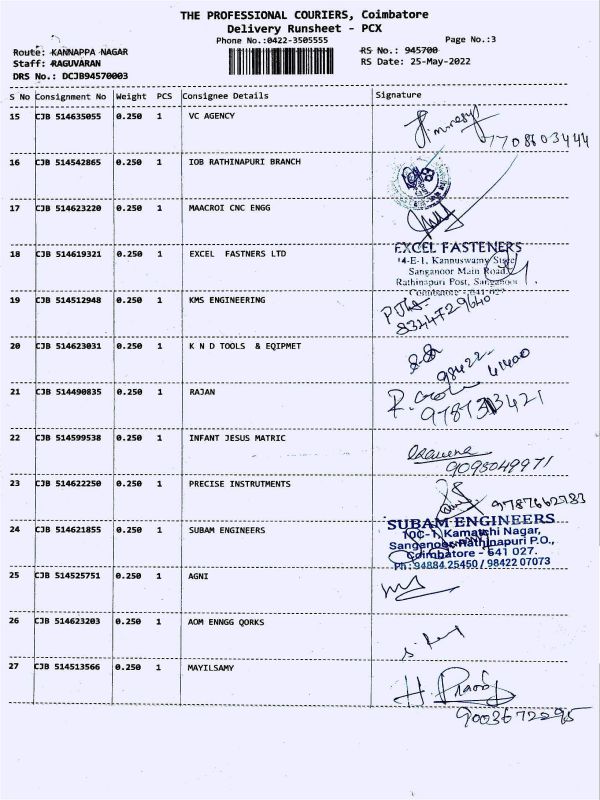 THE PROFESSIONAL COURIERS, Coimbatore
Delivery Runsheet - PCX
Phone No.:0422-3505555 Page No.:3
Route: KANNAPPA NAGAR RS No.: 945700
Staff: RAGUVARAN RS Date: 25-May-2022
DRS No.: DCJB94570003
S No Consignment No Weight PCS Consignee Details Signature
15 CJB 514635055 0.250 1 VC AGENCY
7708603444
16 CJB 514542865 0.250 1 IOB RATHINAPURI BRANCH
17 CJB 514623220 0.250 1 MAACROI CNC ENGG
18 CJB 514619321 0.250 1 EXCEL FASTNERS LTD
EXCEL FASTENERS
14-E-1, Kannuswamy Street
Sanganoor Main Road,
Rathinapuri Post, Sanganoor
Coimbatore - 641 027
19 CJB 514512948 0.250 1 KMS ENGINEERING
8344729640
20 CJB 514623031 0.250 1 K N D TOOLS & EQIPMET
98422
41400
21 CJB 514490835 0.250 1 RAJAN
22 CJB 514599538 0.250 1 INFANT JESUS MATRIC
9095049971
23 CJB 514622250 0.250 1 PRECISE INSTRUTMENTS
9787662783
24 CJB 514621855 0.250 1 SUBAM ENGINEERS
SUBAM ENGINEERS
10C-1, Kamatchi Nagar,
Sanganoor Rathinapuri P.O.,
Coimbatore - 641 027.
Ph : 94884 25450 / 98422 07073
25 CJB 514525751 0.250 1 AGNI
26 CJB 514623203 0.250 1 AOM ENNGG QORKS
27 CJB 514513566 0.250 1 MAYILSAMY
9003672295